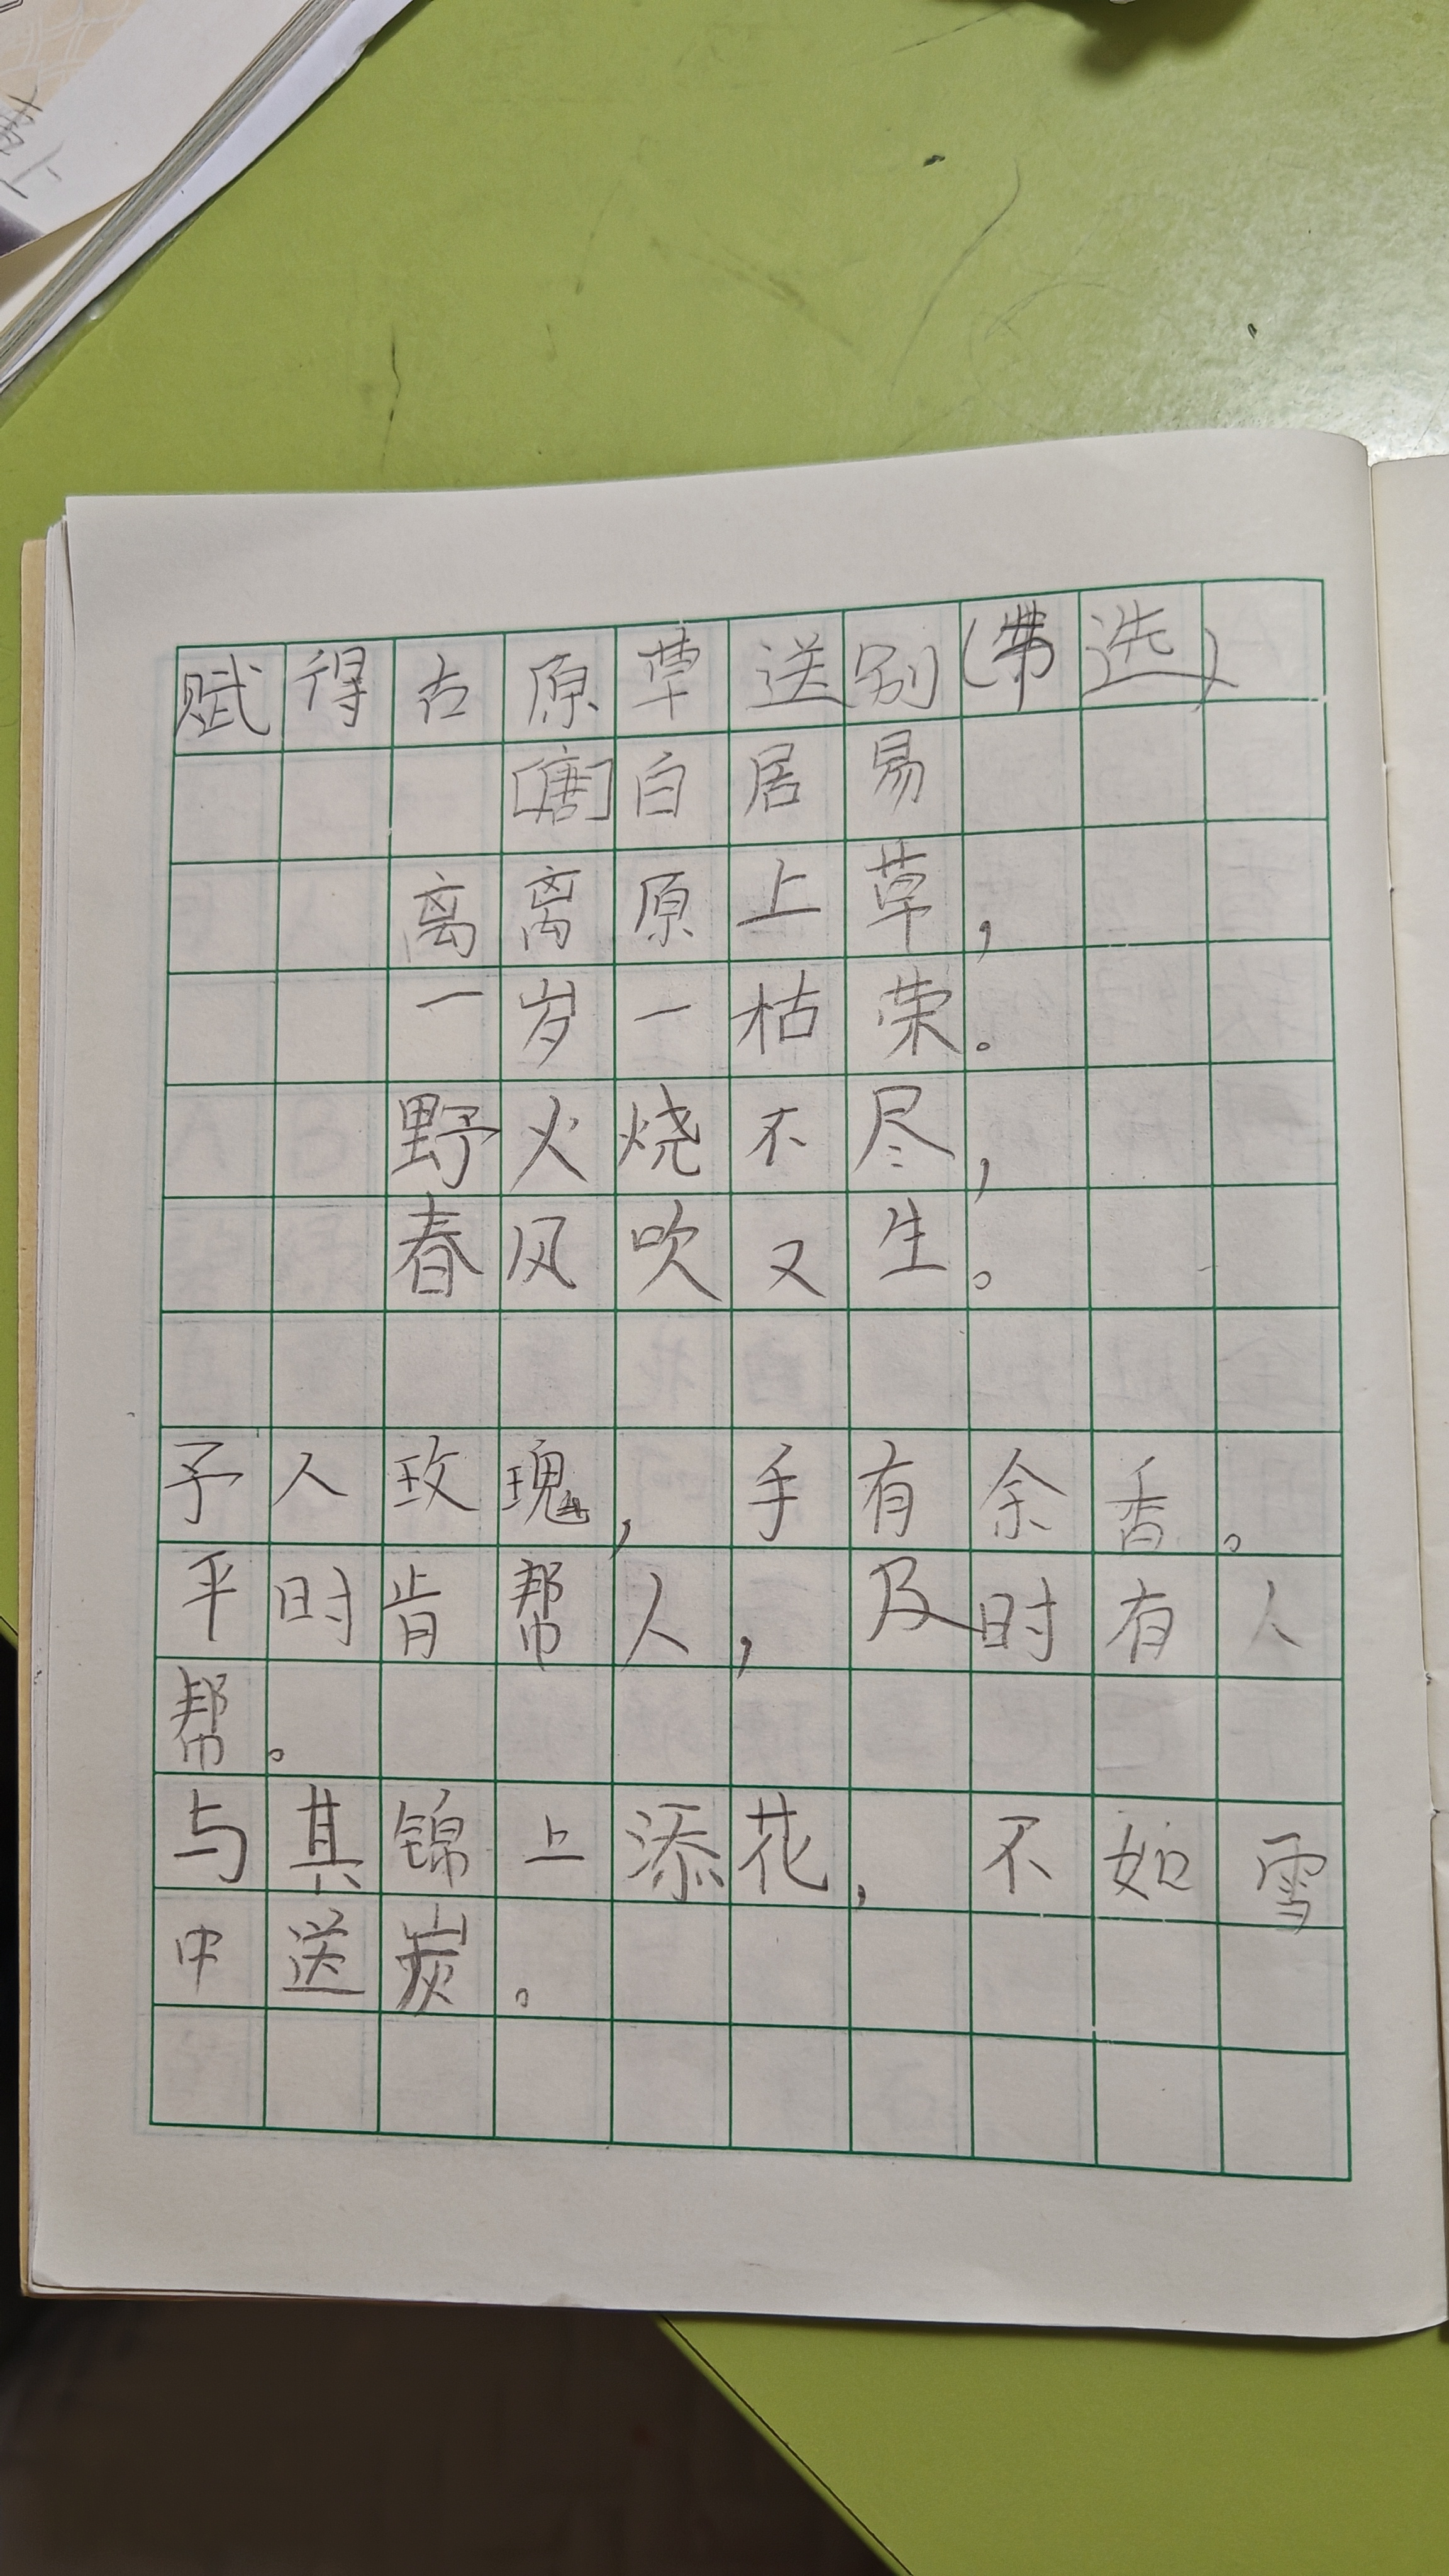 赋得古原草送别(节选)
[唐]白居易
离离原上草，
一岁一枯荣。
野火烧不尽，
春风吹又生。
予人玫瑰，手有余香。
平时肯帮人，及时有人
帮。
与其锦上添花，不如雪
中送炭。